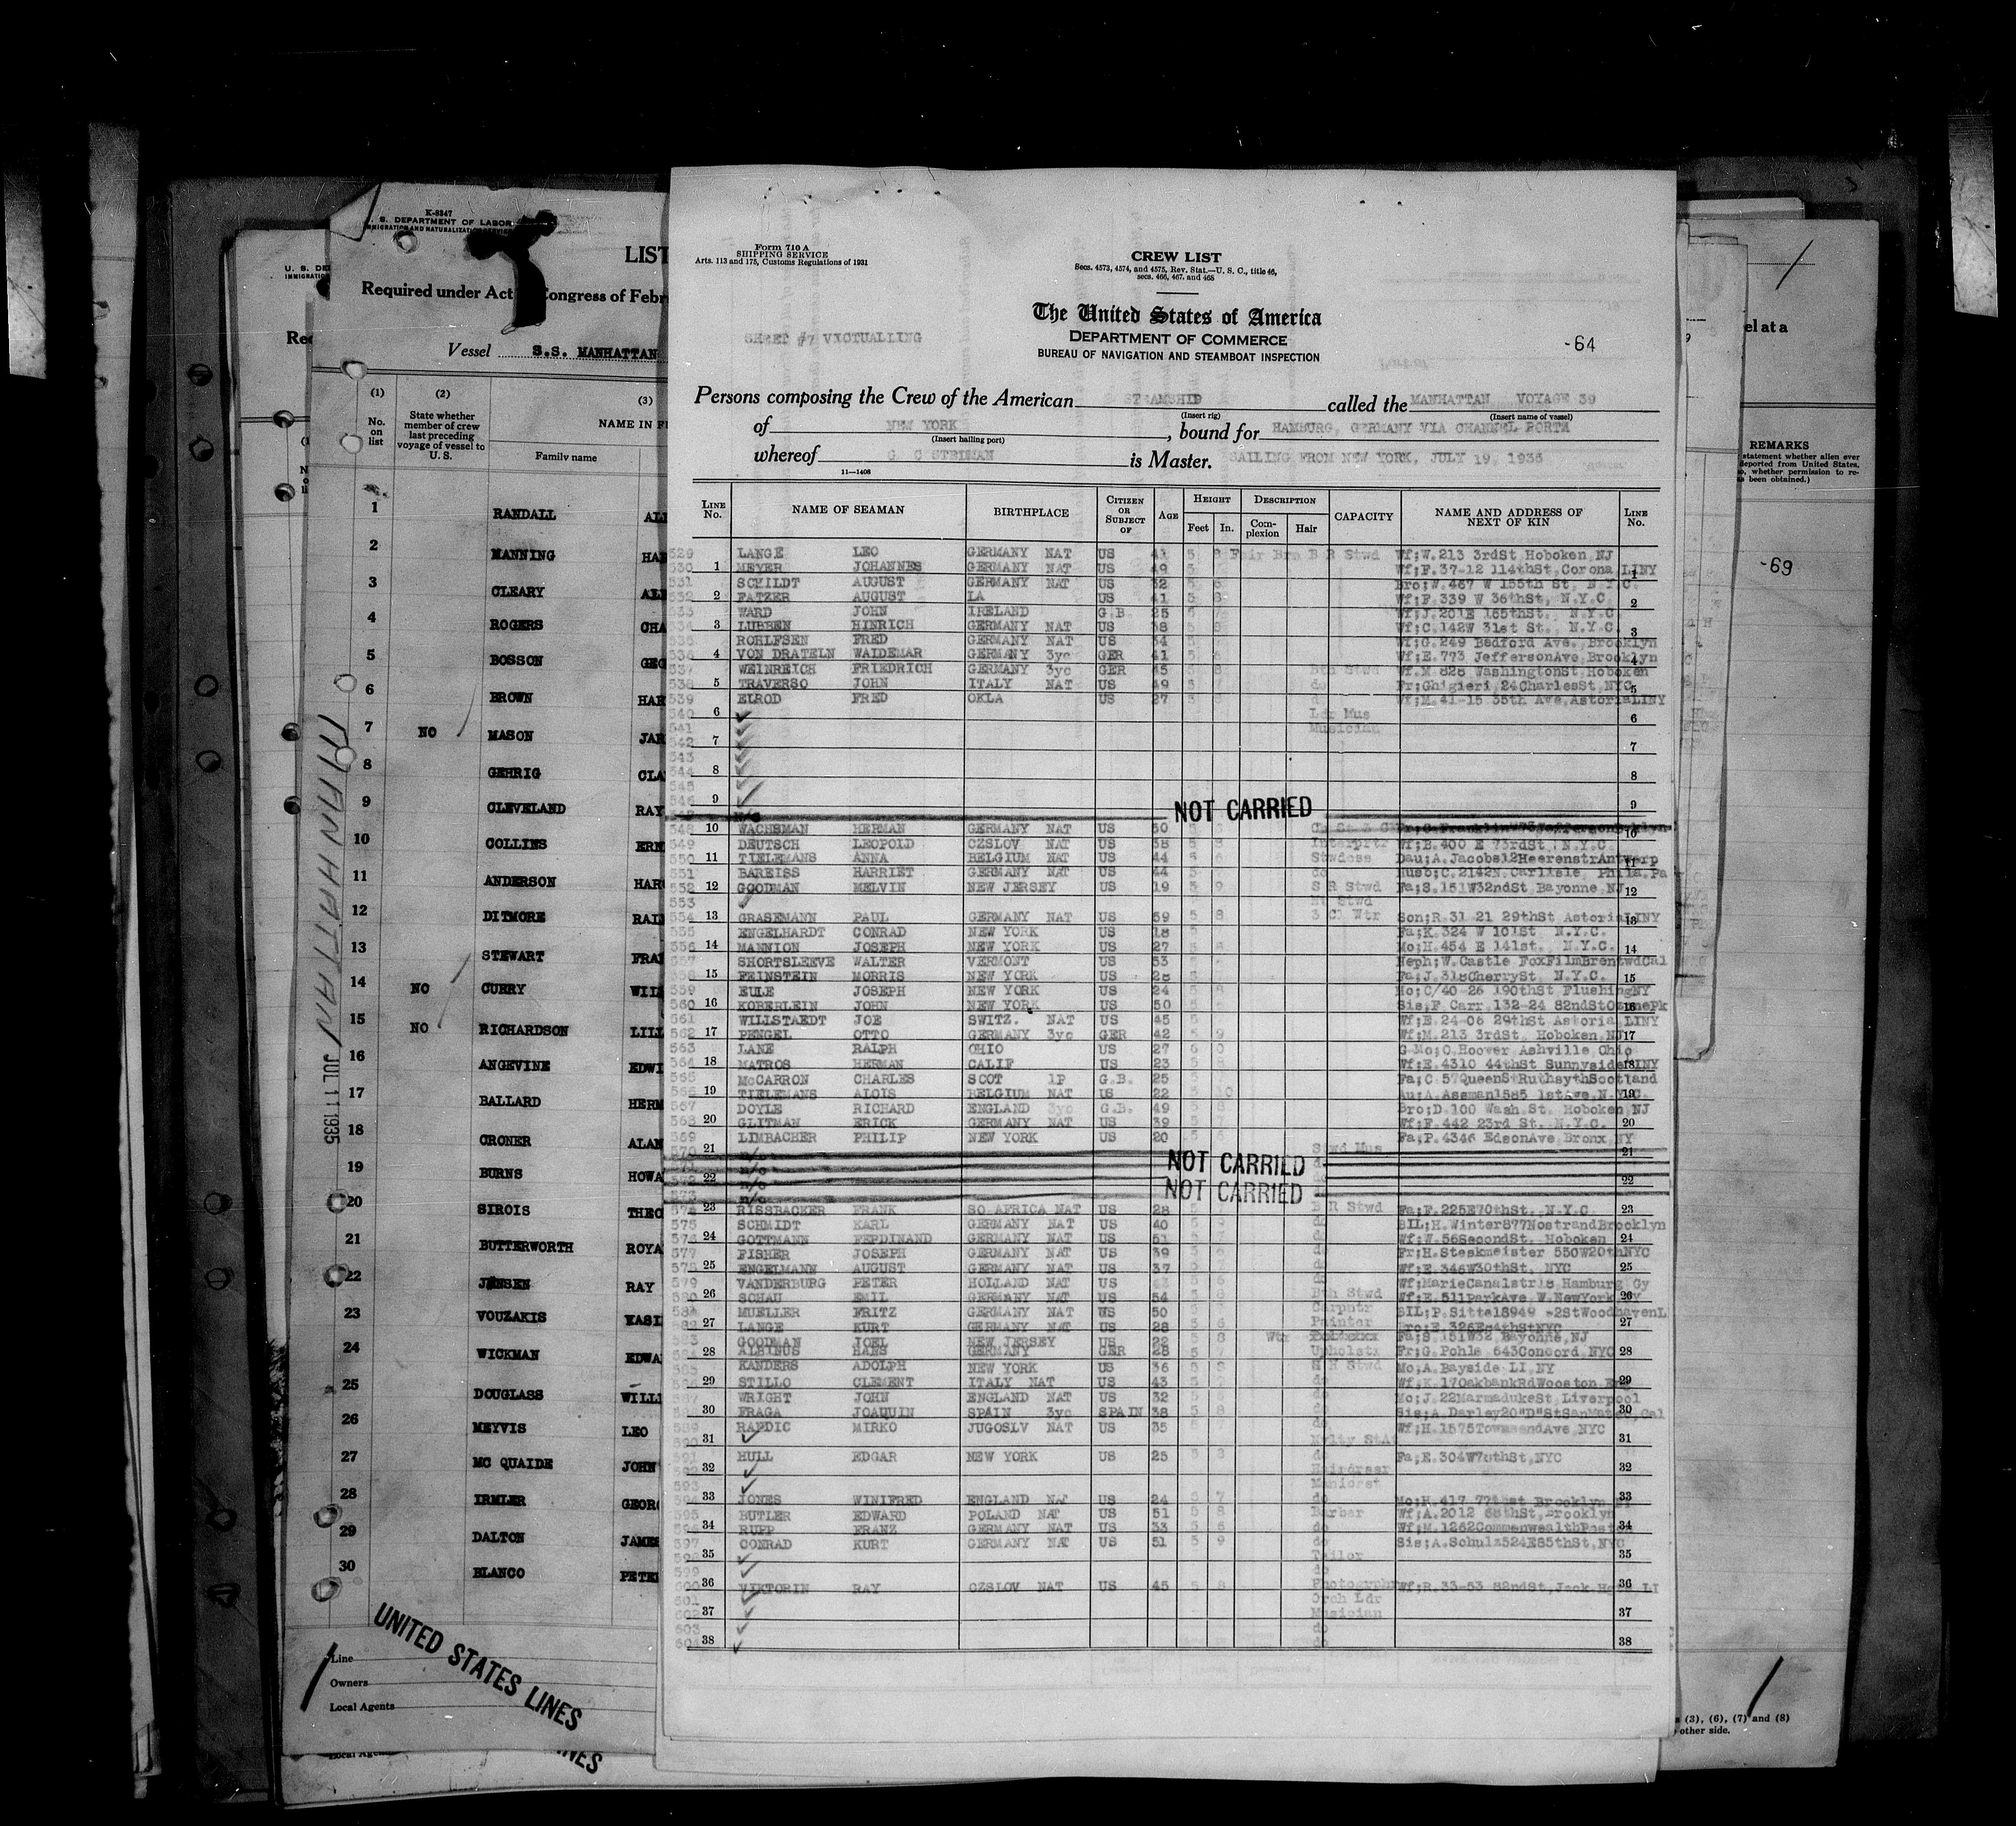 K-8347
U. S. DEPARTMENT OF LABOR
IMMIGRATION AND NATURALIZATION SERVICE
LIST
Required under Act Congress of Febr
Vessel S.S. MANHATTAN
(1) (2) (3)
No. on list
State whether member of crew last preceding voyage of vessel to U. S.
NAME IN F
Family name
1 RANDALL AL
2 MANNING HAR
3 CLEARY AL
4 ROGERS CHA
5 BOSSON GEO
6 BROWN HAR
7 NO MASON JAR
8 GEHRIG CLA
9 CLEVELAND RAY
10 COLLINS ERN
11 ANDERSON HAR
12 DITMORE RAL
13 STEWART FRA
14 NO CURRY WIL
15 NO RICHARDSON LILL
16 ANGEVINE EDWI
17 BALLARD HERM
18 CRONER ALAN
19 BURNS HOWA
20 SIROIS THEO
21 BUTTERWORTH ROYA
22 JENSEN RAY
23 VOUZAKIS VASI
24 WICKMAN EDWA
25 DOUGLASS WILLI
26 MEYVIS LEO
27 MC QUAIDE JOHN
28 IRMLER GEOR
29 DALTON JAMES
30 BLANCO PETE
MANHATTAN
JUL 11 1935
Line
Owners
Local Agents
UNITED STATES LINES
Form 710 A
SHIPPING SERVICE
Arts. 113 and 175, Customs Regulations of 1931
CREW LIST
Secs. 4573, 4574, and 4575, Rev. Stat.—U. S. C., title 46,
secs. 466, 467, and 468
The United States of America
DEPARTMENT OF COMMERCE
BUREAU OF NAVIGATION AND STEAMBOAT INSPECTION
SHEET #7 VICTUALLING
-64
Persons composing the Crew of the American STEAMSHIP called the MANHATTAN VOYAGE 39
(Insert rig) (Insert name of vessel)
of NEW YORK, bound for HAMBURG, GERMANY VIA CHANNEL PORTS
(Insert hailing port)
whereof G C STEDMAN is Master. SAILING FROM NEW YORK, JULY 19, 1935
11—1408
LINE No. NAME OF SEAMAN BIRTHPLACE CITIZEN OR SUBJECT OF AGE HEIGHT Feet In. DESCRIPTION Complexion Hair CAPACITY NAME AND ADDRESS OF NEXT OF KIN LINE No.
529 LANGE LEO GERMANY NAT US 41 5 8 Fair Bro B R Stwd Wf;W.213 3rdSt Hoboken NJ
530 MEYER JOHANNES GERMANY NAT US 49 5 Wf;F.37-12 114thSt,Corona LINY
531 SCHILDT AUGUST GERMANY NAT US 32 5 6 Bro;W.467 W 155th St N.Y.C.
532 FATZER AUGUST LA US 41 5 8 Wf;F.339 W 36thSt, N.Y.C.
533 WARD JOHN IRELAND G.B. 25 5 Wf;J.201E 165thSt. N.Y.C
534 LUBBEN HINRICH GERMANY NAT US 38 5 8 Wf;C.142W 31st St. N.Y.C.
535 ROHLFSEN FRED GERMANY NAT US 34 5 Wf;G.249 Bedford Ave, Brooklyn
536 VON DRATELN WAIDEMAR GERMANY 3yc GER 41 5 Wf;E.773 JeffersonAve,Brooklyn
537 WEINREICH FRIEDRICH GERMANY 3yc GER 45 5 8 Bth Stwd Wf.M 828 WashingtonSt,Hoboken
538 TRAVERSO JOHN ITALY NAT US 49 5 do Fr;Ghigieri 24CharlesSt NYC
539 ELROD FRED OKLA US 27 5 8 d Wf;M.41-15 35th Ave,AstoriaLINY
540 Ldr Mus
541 Musician
542
543
544
545
NOT CARRIED
548 WACHSMAN HERMAN GERMANY NAT US 50 5
549 DEUTSCH LEOPOLD CZSLOV NAT US 38 5 8 Interprtr Wf;B.400 E 73rdSt N.Y.C.
550 TIELEMANS ANNA BELGIUM NAT US 44 5 6 Stwdess Dau;A.Jacobs12HeerenstrAntwerp
551 BAREISS HARRIET GERMANY NAT US 44 5 do Husb;C.2142N.Carlisle Phila.Pa
552 GOODMAN MELVIN NEW JERSEY US 19 5 9 S R Stwd Fa;S.151W32ndSt Bayonne NJ
553 Stwd
554 GRASEMANN PAUL GERMANY NAT US 59 5 8 3 Cl Wtr Son;R.31 21 29thSt AstoriaLINY
555 ENGELHARDT CONRAD NEW YORK US 18 5 Fa;K.324 W 101St N.Y.C.
556 MANNION JOSEPH NEW YORK US 27 5 8 Mo;H.454 E 141st. N.Y.C.
557 SHORTSLEEVE WALTER VERMONT US 53 5 Neph;W.Castle FoxFilmBrentwdCal
558 FEINSTEIN MORRIS NEW YORK US 28 5 Fa;J.318CherrySt N.Y.C.
559 EULE JOSEPH NEW YORK US 24 5 8 Mo;C/40-26 190thSt FlushingNY
560 KOBERLEIN JOHN NEW YORK US 50 5 Sis,F Carr,132-24 82ndStOzonePk
561 WILLSTAEDT JOE SWITZ. NAT US 45 5 Wf;E.24-06 29thSt Astoria LINY
562 PENGEL OTTO GERMANY 3yc GER 42 5 9 Wf;M.213 3rdSt Hoboken NJ
563 LANE RALPH OHIO US 27 6 0 G Mo;O Hoover Ashville Ohio
564 MATROS HERMAN CALIF US 23 5 8 Wf;E.4310 44thSt SunnysideLINY
565 McCARRON CHARLES SCOT 1P G.B. 25 5 Fa;C 57QueenStRuthsythScotland
566 TIELEMANS ALOIS BELGIUM NAT US 22 5 10 Au;A.Assman1585 1stAve.N.Y.C.
567 DOYLE RICHARD ENGLAND 3yc G.B. 49 5 8 Bro;D.100 Wash St. Hoboken NJ
568 GLITMAN ERICK GERMANY NAT US 39 5 Wf;F 442 23rd St. N.Y.C.
569 LIMBACHER PHILIP NEW YORK US 20 5 Fa;P.4346 EdsonAve Bronx NY
570 n/c Stwd Mus
n/c NOT CARRIED
n/c
573 n/c NOT CARRIED
574 RISSBACKER FRANK SO AFRICA NAT US 28 5 7 B R Stwd Fa;F.225E70thSt. N.Y.C.
575 SCHMIDT KARL GERMANY NAT US 40 5 9 do BIL;H.Winter877NostrandBrooklyn
576 GOTTMANN FERDINAND GERMANY NAT US 51 5 7 do Wf;W.56SecondSt. Hoboken
577 FISHER JOSEPH GERMANY NAT US 39 5 6 do Fr;H.Steakmeister 550W20thNYC
578 ENGELMANN AUGUST GERMANY NAT US 37 5 7 d Wf;E.346W30thSt, NYC
579 VANDERBURG PETER HOLLAND NAT US 5 6 do Wf;MarieCanalstr18 Hamburg Gy
580 SCHAU EMIL GERMANY NAT US 54 5 8 Bth Stwd Wf;E.511ParkAve W.NewYork
581 MUELLER FRITZ GERMANY NAT US 50 5 7 Carpntr BIL;P.Sitta18949
582 LANGE KURT GERMANY NAT US 28 5 6 Painter Bro;E.326E84thStNYC
583 GOODMAN JOEL NEW JERSEY US 22 5 8 Wtr Fa;S.151W32 Bayonne,NJ
584 ALBINUS HANS GERMANY GER 28 5 7 Upholstr Fr;G.Pohle 643Concord NYC
585 RANDERS ADOLPH NEW YORK US 36 5 8 H R Stwd Mo,A.Bayside LI NY
586 STILLO CLEMENT ITALY NAT US 43 5 do Wf.K.17OakbankRdWooston Eng
587 WRIGHT JOHN ENGLAND NAT US 32 5 do Mo;J.22MarmadukeSt Liverpool
588 FRAGA JOAQUIN SPAIN 3yc SPAIN 38 5 8 do Sis;A.Darley20"D"StSanMateo,Cal
589 RAPDIC MIRKO JUGOSLV NAT US 35 5 do Wf;H.1575TownsendAve NYC
590 Nvlty StA
591 HULL EDGAR NEW YORK US 25 5 8 do Fa,E.304W78thSt,NYC
592 Hairdrssr
593 Manicrst
594 JONES WINIFRED ENGLAND NAT US 24 5 7 do Mo;H.417 77thst Brooklyn
595 BUTLER EDWARD POLAND NAT US 51 5 8 Barber Wf;A.2012 68thSt,Brooklyn
596 RUPP FRANZ GERMANY NAT US 33 5 6 do Wf;M.1262Commonwealth
597 CONRAD KURT GERMANY NAT US 51 5 9 do Sis;A.Schulz524E85thSt,NYC
598 Tailor
599 do
600 VIKTORIN RAY CZSLOV NAT US 45 5 8 Photogrphr Wf;R.33-53 82ndSt,Jack H LI
601 Orch Ldr
602 Musician
603 do
604 do
-69
REMARKS
statement whether alien ever
deported from United States,
so, whether permission to re-
as been obtained.)
(3), (6), (7) and (8)
other side.